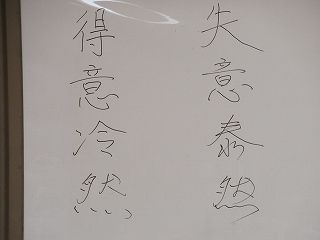 失意泰然
得意冷然